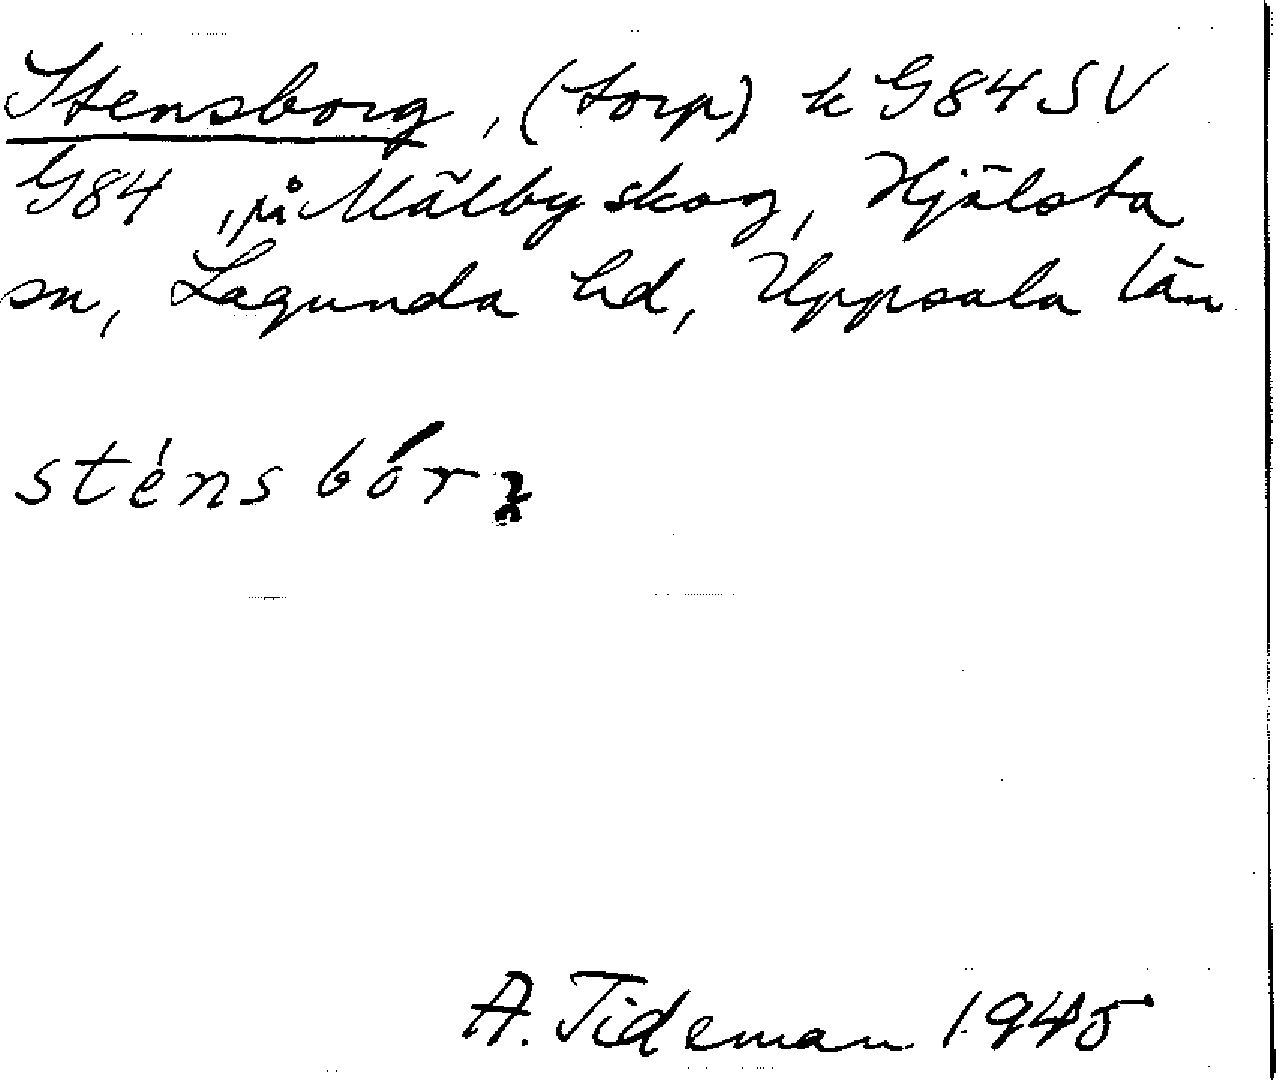 Stensborg, (torp) k G84 SV
G84, på Mälby skog, Hjälsta
sn, Lagunda hd, Uppsala län
sténs bór
A. Tideman 1945